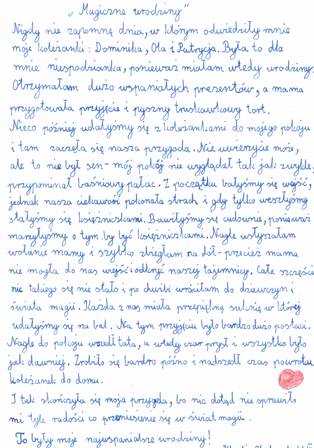 „Magiczne urodziny"
Nigdy nie zapomnę dnia, w którym odwiedziły mnie
moje koleżanki: Dominika, Ola i Patrycja. Była to dla
mnie niespodzianka, ponieważ miałam wtedy urodziny.
Otrzymałam dużo wspaniałych prezentów, a mama
przygotowała przyjęcie i pyszny truskawkowy tort.
Nieco później udałyśmy się z koleżankami do mojego pokoju
i tam zaczęła się nasza przygoda. Nie uwierzycie może,
ale to nie był sen - mój pokój nie wyglądał tak jak zwykle,
przypominał baśniowy pałac. Z początku bałyśmy się wejść,
jednak nasza ciekawość pokonała strach i gdy tylko weszłyśmy
stałyśmy się księżniczkami. Bawiłyśmy się cudownie, ponieważ
marzyłyśmy o tym by być księżniczkami. Nagle usłyszałam
wołanie mamy i szybko zbiegłam na dół - przecież mama
nie mogła do nas wejść i odkryć naszej tajemnicy. Całe szczęście
nic takiego się nie stało i po chwili wróciłam do dziewczyn i
świata magii. Każda z nas miała przepiękną suknię w której
udałyśmy się na bal. Na tym przyjęciu było bardzo dużo postaci.
Nagle do pokoju wszedł tata, a wtedy czar prysł i wszystko było
jak dawniej. Zrobiło się bardzo późno i nadszedł czas powrotu
koleżanek do domu.
I tak skończyła się moja przygoda, bo nic dotąd nie sprawiło
mi tyle radości co przeniesienie się w świat magii.
To były moje najwspanialsze urodziny!